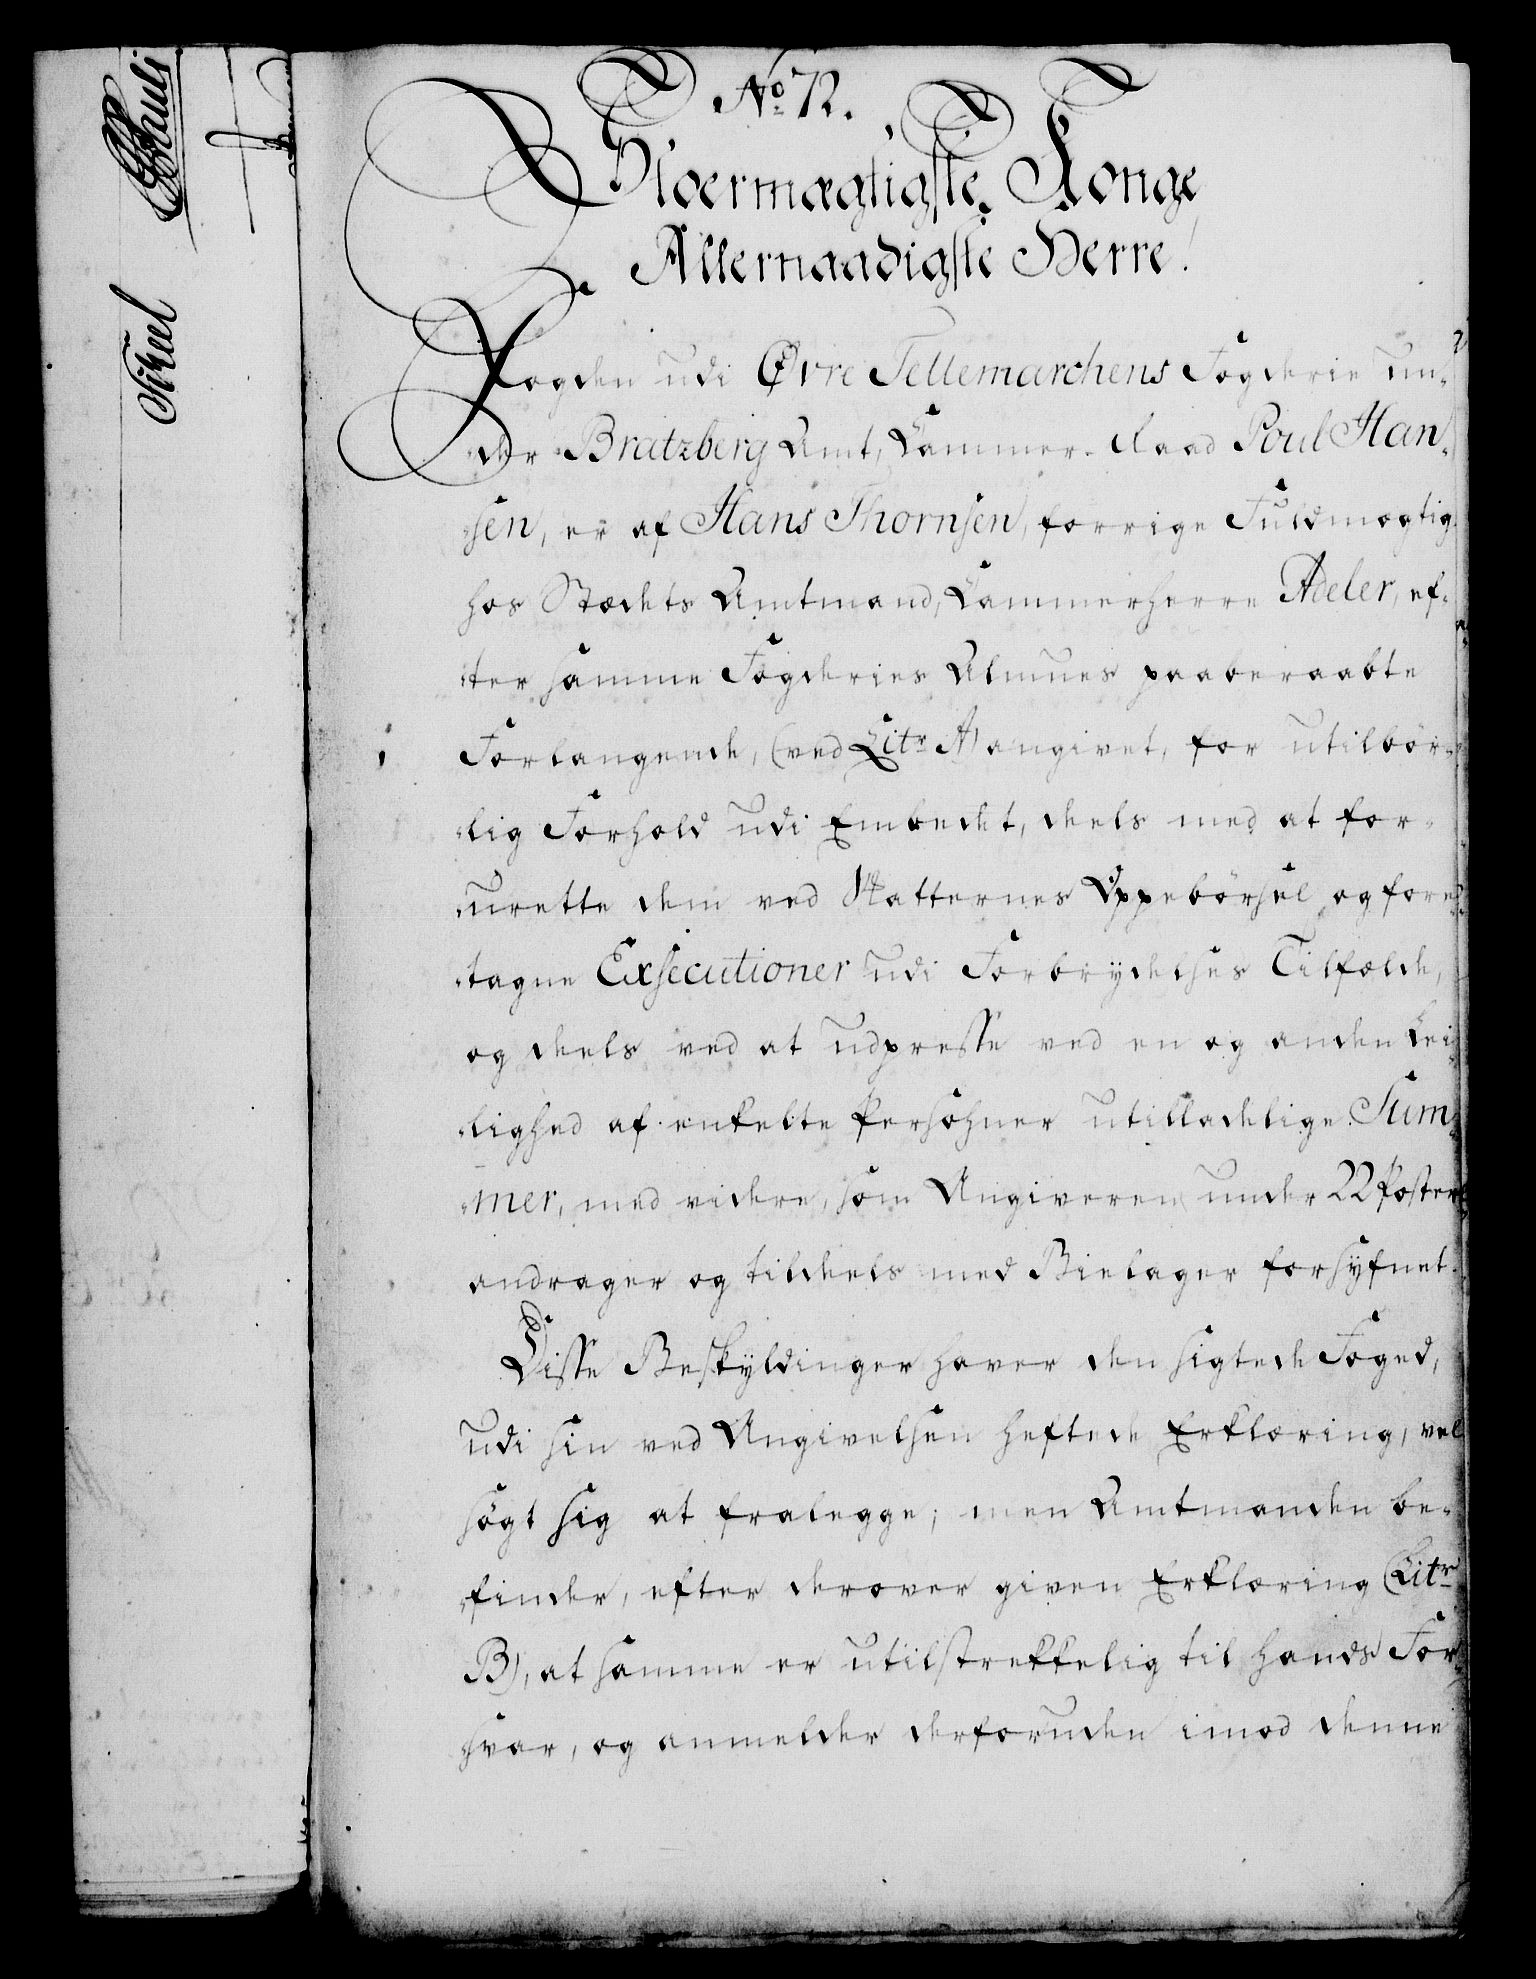 No 72.
Stoermægtigste Konge
Allernaadigste Herre!
Fogden udi Øvre Tellemarchens Fogderie un-
der Bratzberg Amt, Cammer-Raad Poul Han-
sen, er af Hans Thornsen, forrige Fuldmægtig
hos Stædets Amtmand, Cammerherre Adeler, ef-
ter samme Fogderies Almues paaberaabte
Forlangende, (ved Litr A) angivet, for utilbör-
lig Forhold udi Embedet, deels med at for-
urette dem ved Skatternes Oppebörsel og fore-
tagne Exsecutioner udi Forbrÿdelses Tilfælde,
og deels ved at udpresse ved en og anden Lei-
lighed af enkelte Persohner utilladelige Sum-
mer, med videre, som Angiveren under 22 Poster
andrager og tildeels med Bielager forsÿfnet.
Disse Beskÿldinger haver den sigtede Foged,
udi sin ved Angivelsen heftede Erklæring, vel
søgt sig at fralegge; men Amtmanden be-
finder, efter derover given Erklæring (Litr
B), at samme er utilstrekkelig til hands For-
svar, og anmelder derforuden imod denne